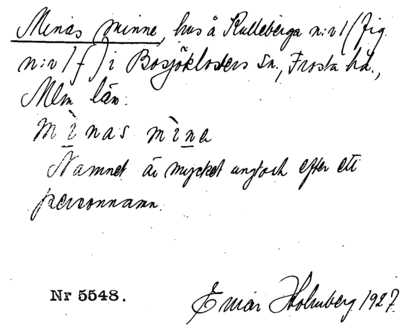 Minas minne, hus å Kulleberga n:r 1 (fig.
n:r 1 f) i Bosjöklosters sn, Frosta hd.,
Mlm län.
mìnas mìnə
Namnet är mycket ungt och efter ett
personnamn.
Nr 5548. Einar Holmberg 1927.